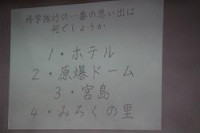 修学旅行の一番の思い出は
何でしょうか
1・ホテル
2・原爆ドーム
3・宮島
4・みろくの里